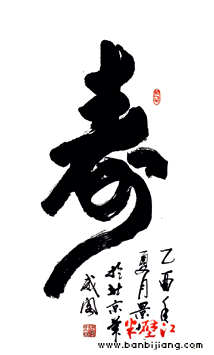 寿
乙酉年
夏月景
於北京业
成国
半壁江
www.banbijiang.com